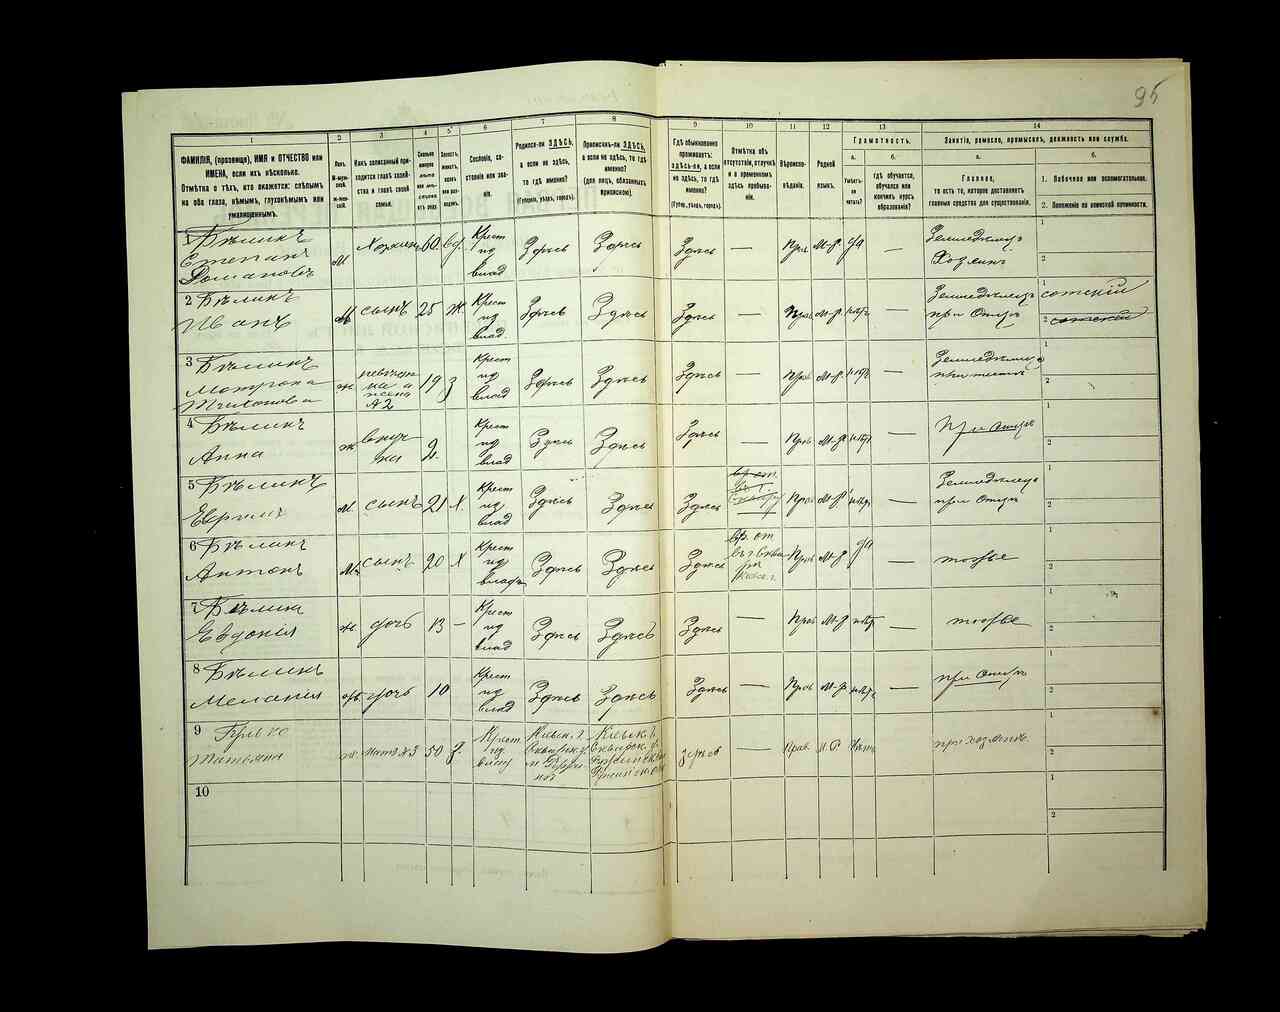 95
1
2
3
4
5
6
7
8
9
10
11
12
13
14
ФАМИЛІЯ, (прозвище), ИМЯ и ОТЧЕСТВО или
ИМЕНА, если ихъ нѣсколько.
Отмѣтка о тѣхъ, кто окажется: слѣпымъ
на оба глаза, нѣмымъ, глухонѣмымъ или
умалишеннымъ.
Полъ.
М-мужской.
Ж-женскій.
Какъ записанный приходится главѣ хозяйства и главѣ своей семьи.
Сословіе, состояніе или званіе.
Родился-ли ЗДѢСЬ,
а если не здѣсь,
то гдѣ именно?
(Губернія, уѣздъ, городъ).
Приписанъ-ли ЗДѢСЬ,
а если не здѣсь, то гдѣ
именно?
(для лицъ, обязанныхъ
припискою).
Гдѣ обыкновенно
проживаетъ:
здѣсь-ли, а если
не здѣсь, то гдѣ
именно?
(Губер., уѣздъ, городъ).
Отмѣтка объ
отсутствіи, отлучкѣ
и о временномъ
здѣсь пребываніи.
Вѣроисповѣданіе.
Родной
языкъ.
Грамотность.
а.
Умѣетъ-ли
читать?
б.
Гдѣ обучается,
обучался или
кончилъ курсъ
образованія?
Занятіе, ремесло, промыселъ, должность или служба.
а.
Главное,
то есть то, которое доставляетъ
главныя средства для существованія.
б.
1. Побочное или вспомогательное.
2. Положеніе по воинской повинности.
1 Бѣликъ
Степанъ
Домановъ
М
Хозяинъ
60
вд.
Крест
из
влад
Здѣсь
Здѣсь
Здѣсь
—
Прав
М-р.
да
—
Земледѣлецъ
Хозяинъ
1
2
2 Бѣликъ
Иванъ
М
сынъ
25
Ж.
Крест
из
влад.
Здѣсь
Здѣсь
Здѣсь
—
Прав
М-р.
нѣтъ
—
Земледѣлецъ
при Отцѣ
1 сотскій
2 сотскій
3 Бѣликъ
Мотрона
Тихонова
ж
невѣстка
жена
№ 2
19
З
Крест
из
влад
Здѣсь
Здѣсь
Здѣсь
—
Прав
М-р.
нѣтъ
—
Земледѣлецъ
1
2
4 Бѣликъ
Анна
ж
внучка
2
Крест
из
влад
Здѣсь
Здѣсь
Здѣсь
—
Прав
М-р
нѣтъ
—
При Отцѣ
1
2
5 Бѣликъ
М
сынъ
21
Х.
Крест
из
влад
Здѣсь
Здѣсь
Здѣсь
Прав
М-р
нѣтъ
—
Земледѣлецъ
при Отцѣ
1
2
6 Бѣликъ
Антонъ
М
сынъ
20
Х
Крест
из
влад
Здѣсь
Здѣсь
Здѣсь
вр. от
Прав
М-р
да
—
тоже
1
2
7 Бѣлик
Евдокія
ж
дочь
13
—
Крест
из
влад
Здѣсь
Здѣсь
Здѣсь
—
Прав
М-р
нѣт
—
тоже
1
2
8 Бѣликъ
Меланія
ж
дочь
10
Крест
из
влад
Здѣсь
Здѣсь
Здѣсь
—
Прав
М-р
нѣтъ
—
при Отцѣ
1
2
9
Татьяна
ж
мать №3
50
Крест
из
влад
Кіевск. г.
Сквирск. у.
Кіевск. г.
Сквирск. у.
здѣсь
Прав
М-р
нѣт
при хозяинѣ.
1
2
10
1
2